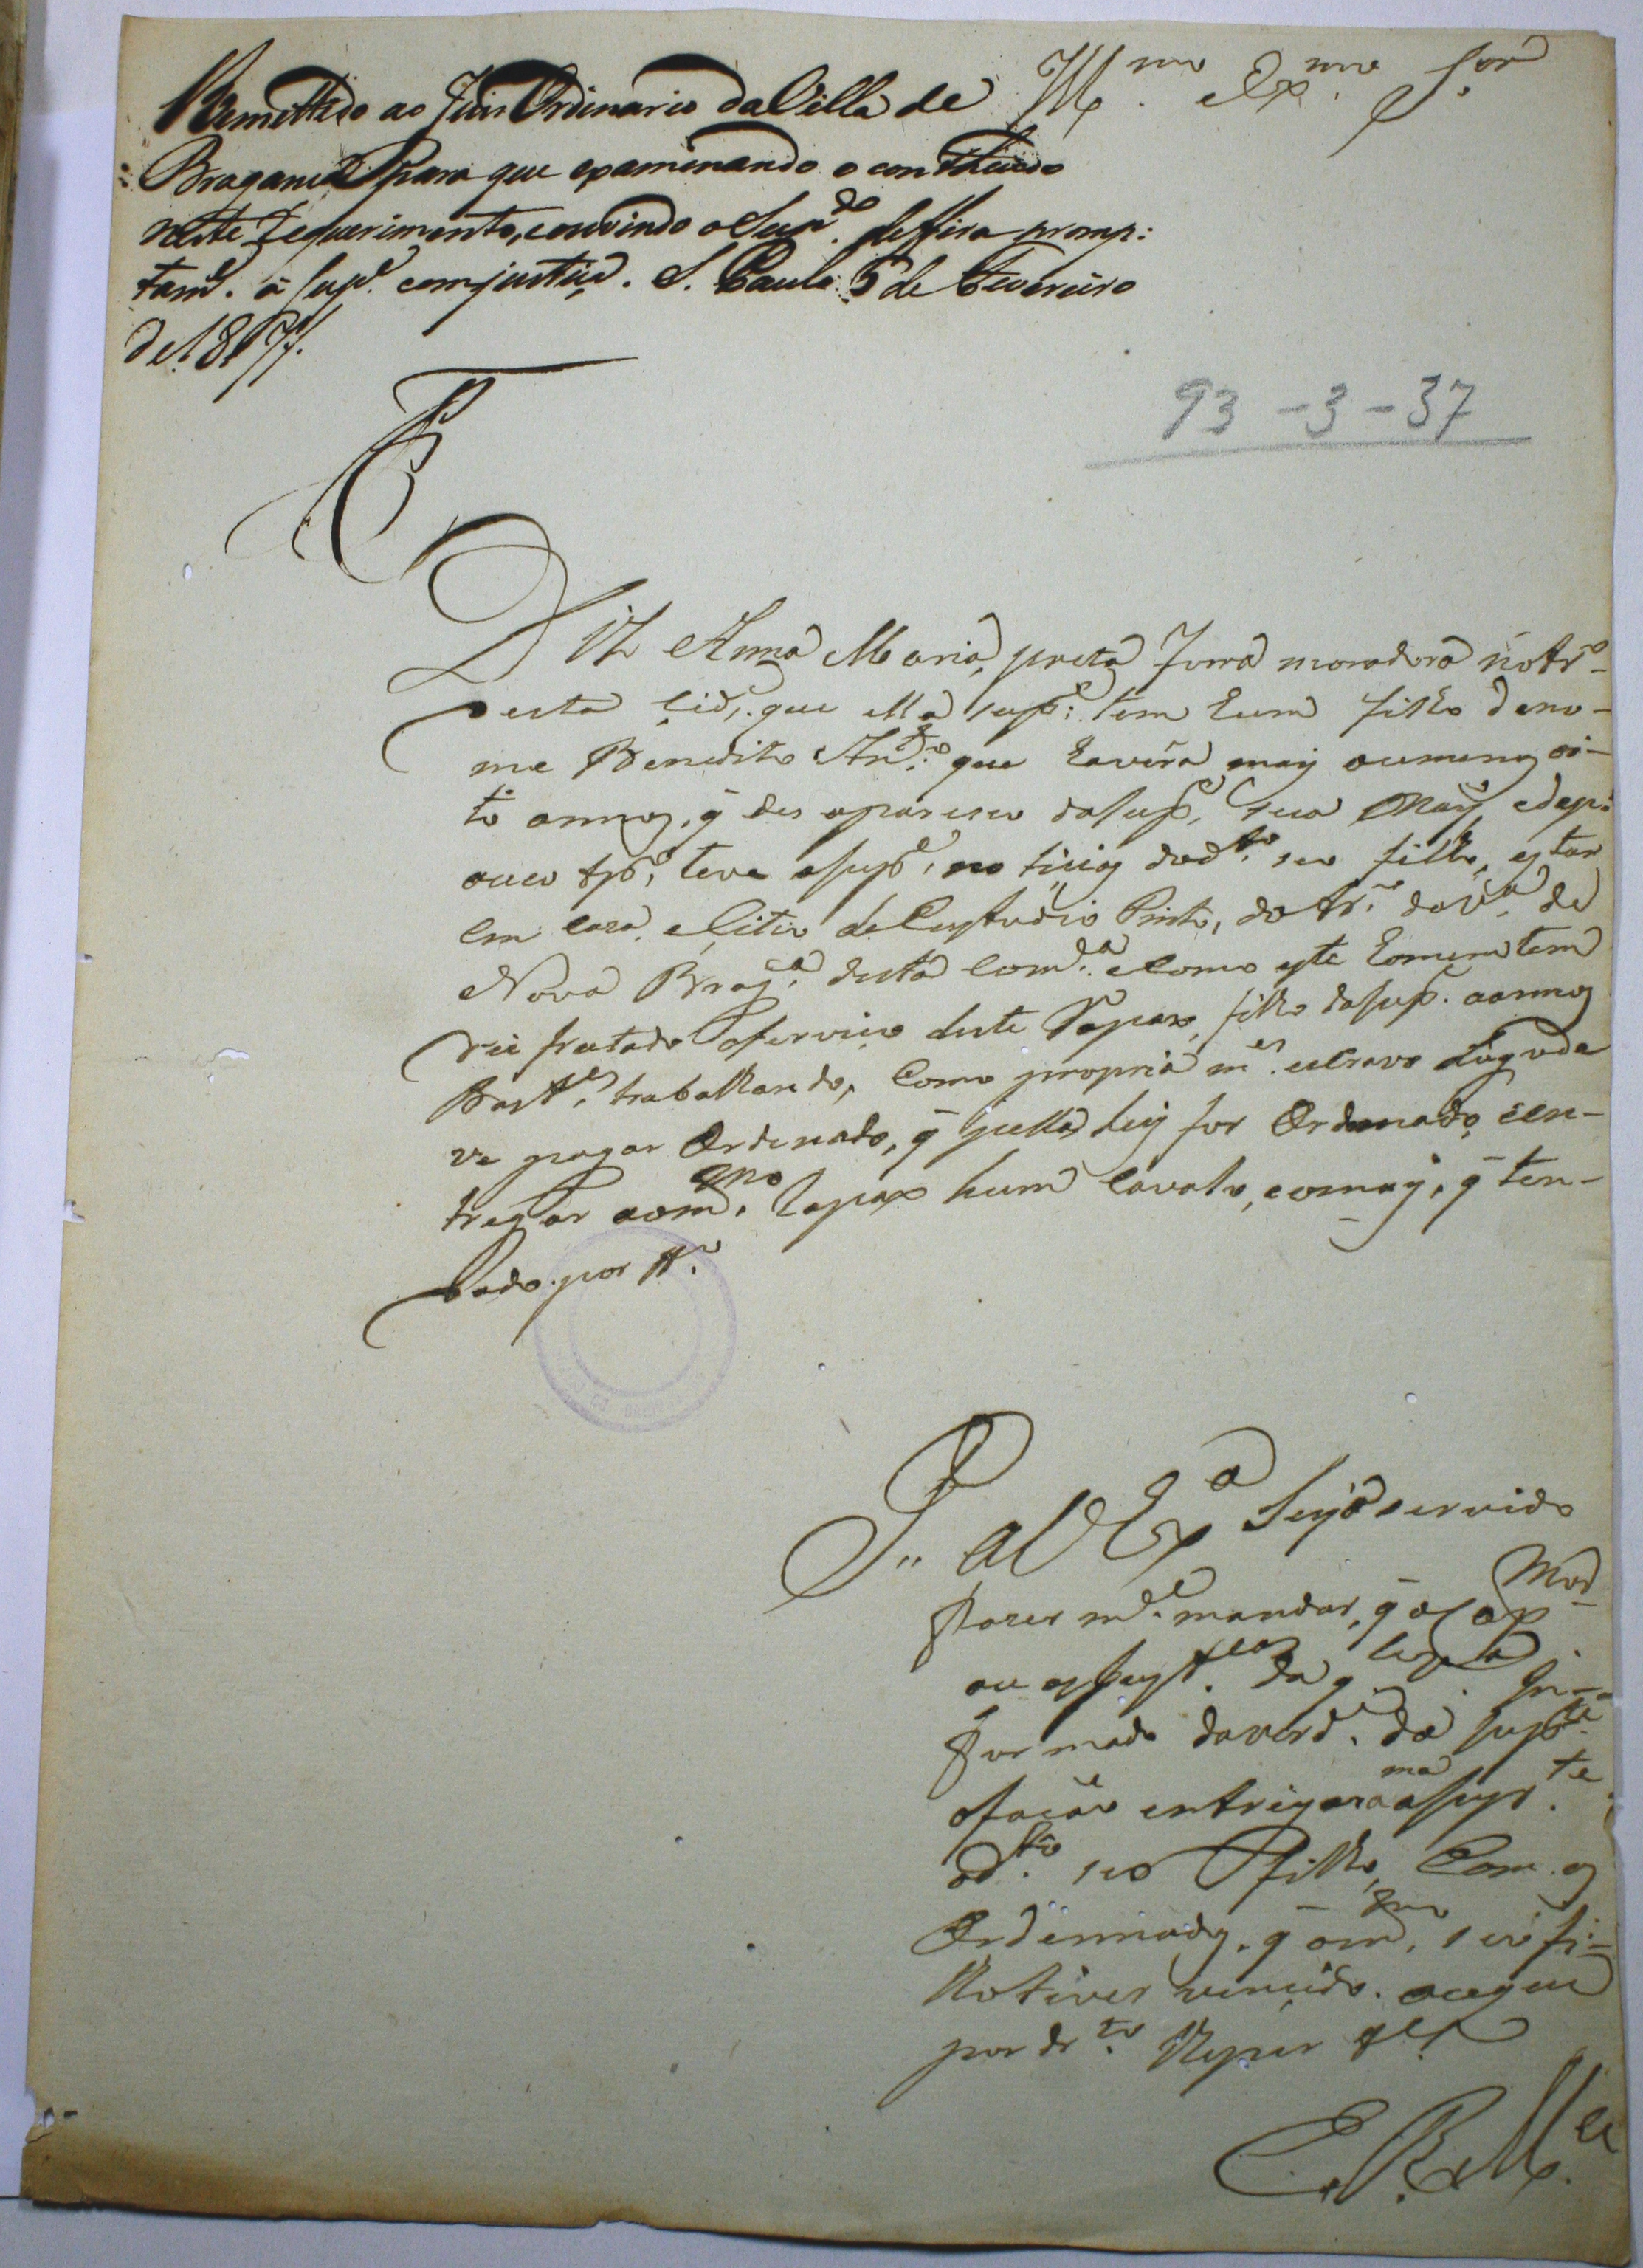 Remettido ao Juiz Ordinario da Villa de
Bragança para que examinando o conthiudo
neste Requerimento, e ouvindo o Sup.do deffira promp:
tam.e á Sup.e com justiça. S. Paulo 5 de Fevereiro
de 1817.
Ill.mo Ex.mo S.or
93-3-37
Diz Anna Maria, preta forra moradora no tr.o
desta Cid.e que ella sup.e tem hum filho de no-
me Benedito An.to que havera mais ou menos oi-
to annos, q̃ desapareseo da sup.e sua May, e dep:
ouco tp.o teve a sup.e noticias do d.to seo filho, estar
em caza, e Citio de Custodio Pinto, do tr.o da V.a de
Nova Brag.ça desta Com.ca e como este homem tem
desfrutado o serviço deste Rapax, filho da sup.e annos
Bast.es trabalhando, como propria m.e escravo
ve pagar Ordenado, q̃ pella ley for Ordenado, e en-
tregar ao m.mo Rapax hum Cavalo, e o mais, q̃ ten-
P. a V Ex.a Seja servido
fazer m.e mandar, q̃ o Cap.
Mor
ou
formado da verd.e da sup.te
o faça entregar a sup.te
ma
o d.to seo filho, Com os
Ordennados, q̃ o m.mo seo fi-
lho tiver vencido. o a que
por dr.to
E. R. M.ce